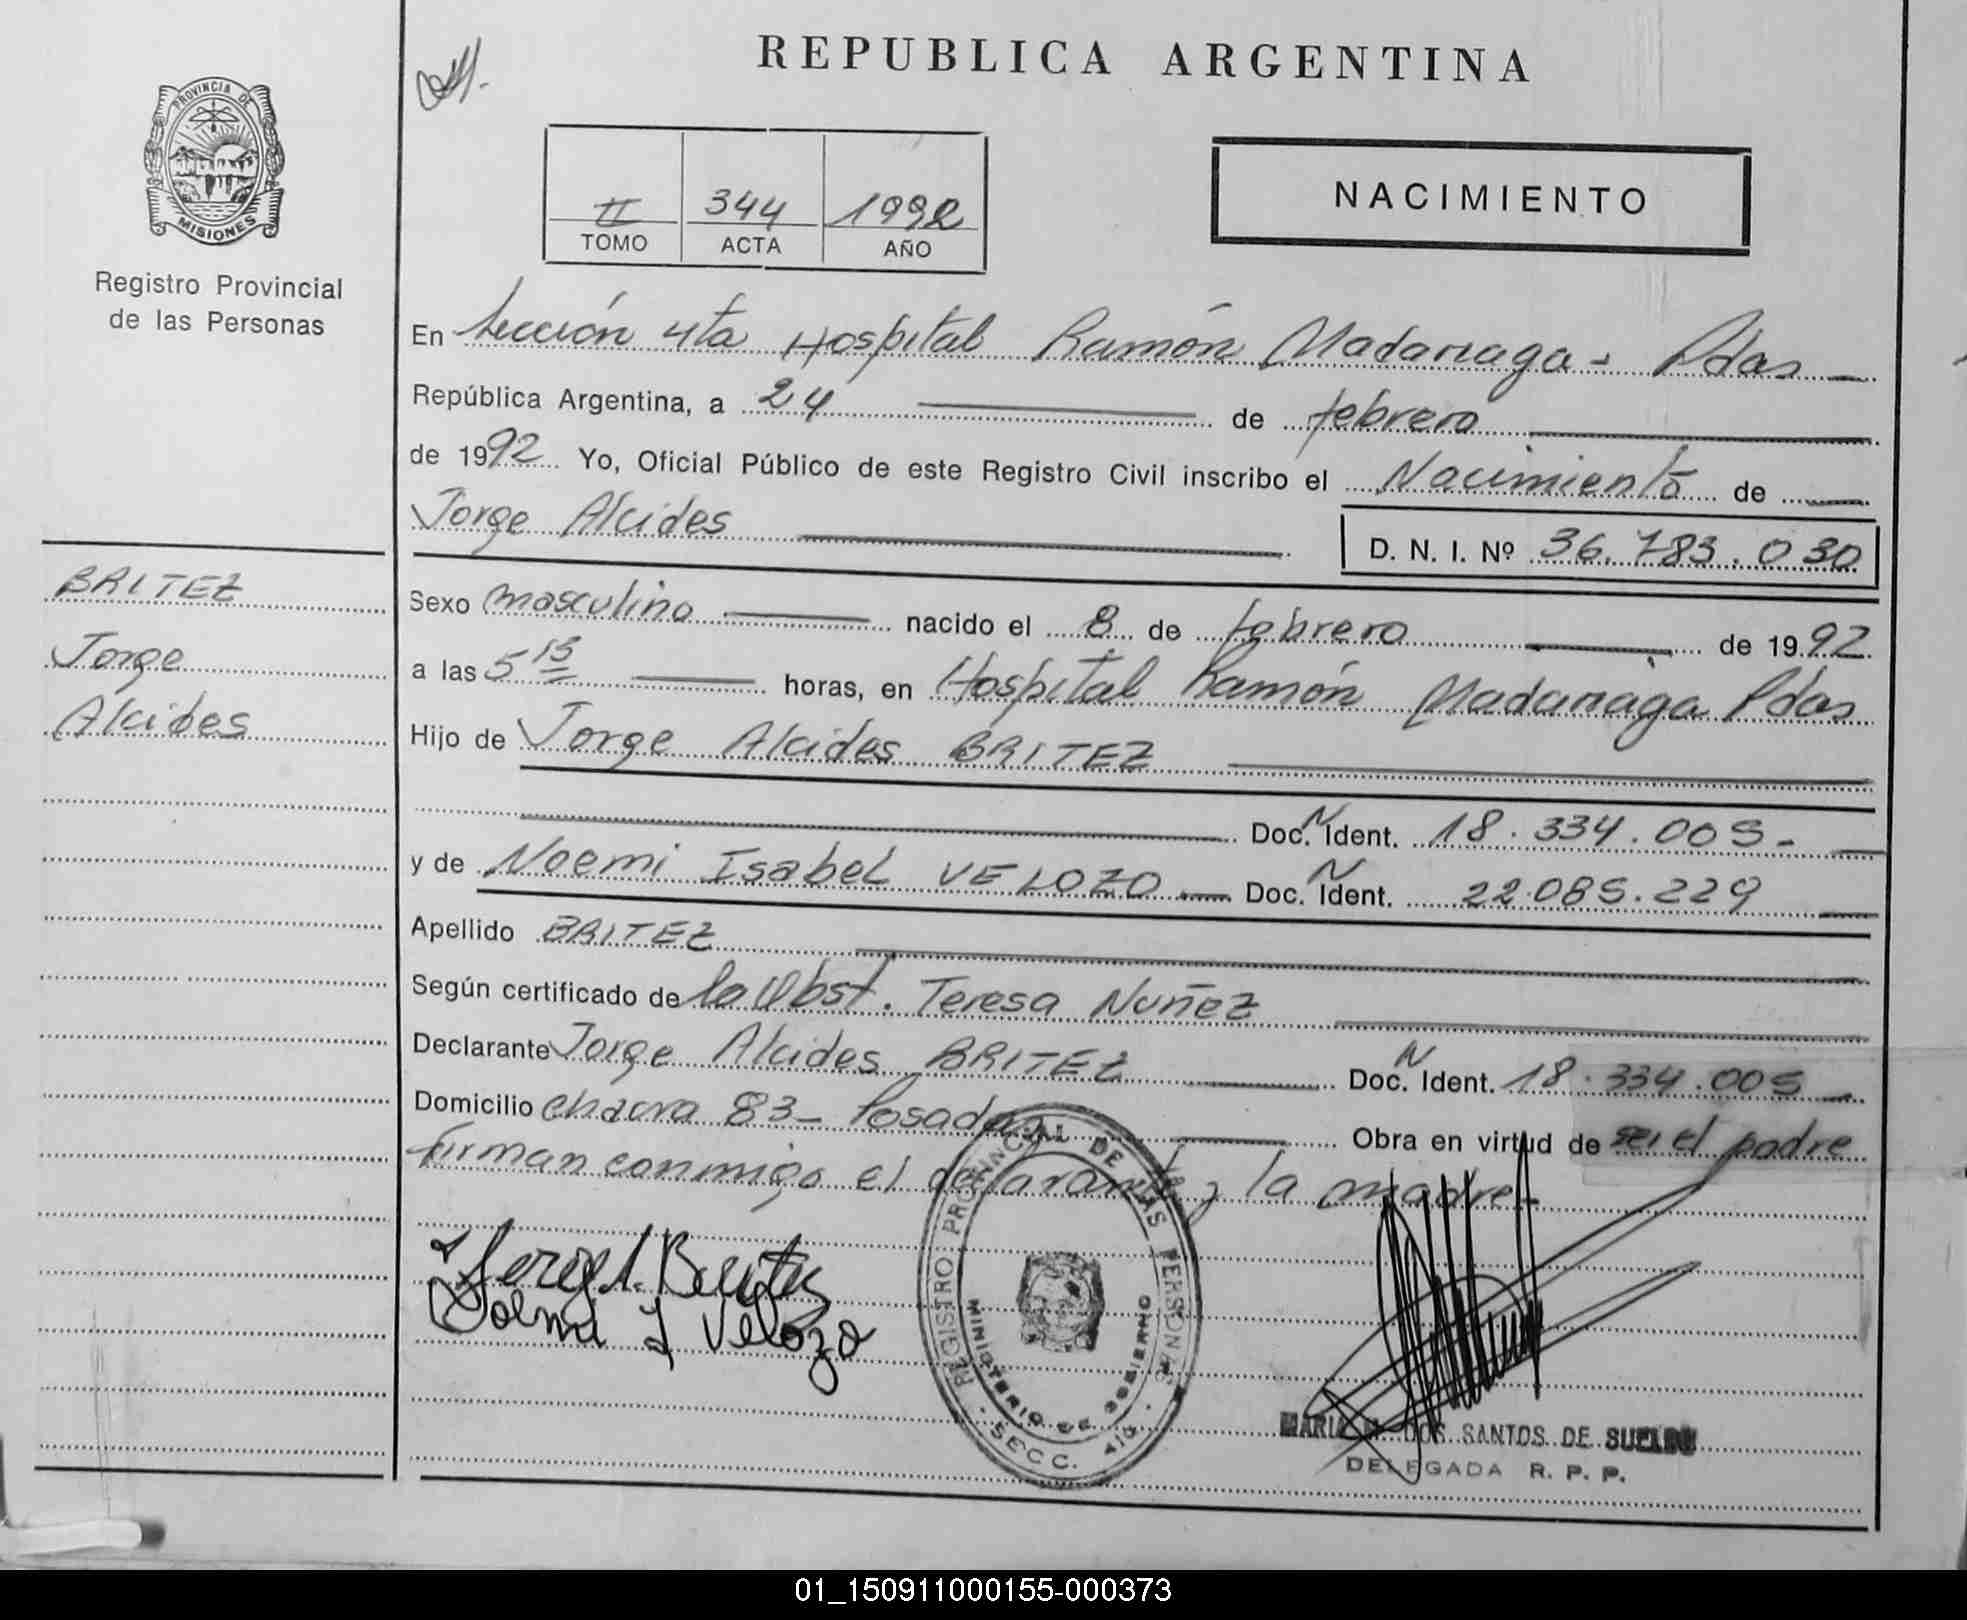 REPUBLICA ARGENTINA
PROVINCIA DE
MISIONES
Registro Provincial
de las Personas
II 344 1992
TOMO ACTA AÑO
NACIMIENTO
En Sección 4ta Hospital Ramón Madariaga - Pdas
República Argentina, a 24 de febrero
de 1992 Yo, Oficial Público de este Registro Civil inscribo el Nacimiento de
Jorge Alcides D. N. I. Nº 36.783.030
BRITEZ
Jorge
Alcides
Sexo masculino nacido el 8 de febrero de 1992
a las 5 15 horas, en Hospital Ramón Madariaga Pdas
Hijo de Jorge Alcides BRITEZ
Doc. N Ident. 18.334.005-
y de Noemi Isabel VELOZO Doc. N Ident. 22.085.229
Apellido BRITEZ
Según certificado de la Obst. Teresa Nuñez
Declarante Jorge Alcides BRITEZ Doc. N Ident. 18.334.005
Domicilio chacra 83- Posadas Obra en virtud de ser el padre
firman conmigo el declarante y la madre-
Jorge A. Britez
Noemi I Velozo
REGISTRO PROVINCIAL DE LAS PERSONAS
MINISTERIO DE GOBIERNO
SECC. 4ta
MARIA M. DOS SANTOS DE SUELDO
DELEGADA R. P. P.
01_150911000155-000373